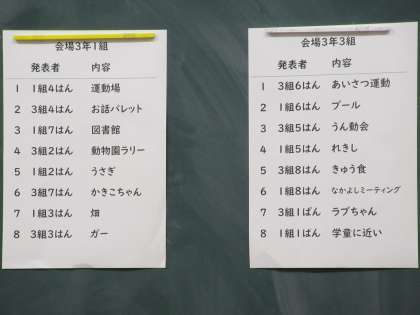 会場3年1組
発表者 内容
1 1組4はん 運動場
2 3組4はん お話パレット
3 1組7はん 図書館
4 3組2はん 動物園ラリー
5 1組2はん うさぎ
6 3組7はん かきこちゃん
7 1組3はん 畑
8 3組3はん ガー
会場3年3組
発表者 内容
1 3組6はん あいさつ運動
2 1組6はん プール
3 3組5はん うん動会
4 1組5はん れきし
5 3組8はん きゅう食
6 1組8はん なかよしミーティング
7 3組1ぱん ラブちゃん
8 1組1はん 学童に近い